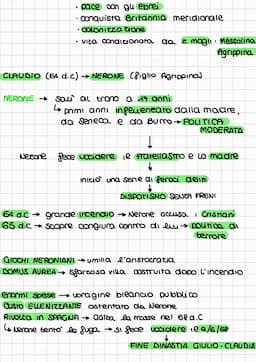 · pace con gli ebrei
· conquista Britannia meridionale
· colonizza trone
· vita condizionata da 2 mogli · Messalina
Agrippina
CLAUDIO (54 d.c) → NERONE (figlio Agrippina)
NERONE → salì al trono a 17 anni
↳ primi anni influenzato dalla madre,
da Seneca e da Burro → POLITICA
MODERATA
Nerone fece uccidere il fratellastro e la madre
iniziò una serie di feroci delitti
DISPOTISMO SENZA FRENI
64 d.c → grande incendio → Nerone accusa i Cristiani
65 d.c → scopre congiura contro di lui → politica di
terrore
GIOCHI NERONIANI → umilia l'aristocrazia
DOMUS AUREA → sfarzosa villa costruita dopo l'incendio
enormi spese → voragine bilancio pubblico
GUSTO ELLENIZZANTE ostentato da Nerone
Rivolta in SPAGNA → Galba, la morte nel 68 d.C
↳ Nerone tentò la fuga → si fece uccidere il 9/6/68
FINE DINASTIA GIULIO-CLAUDIA